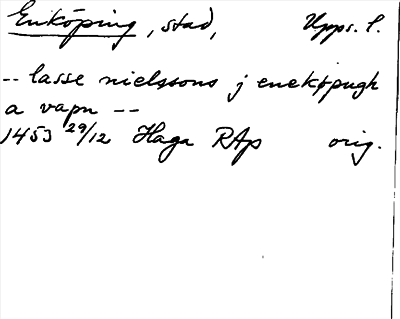 Enköping, stad, Upps. l.
-- lasse nielssons j enekøpugh
a vapn --
1453 29/12 Haga RAp orig.